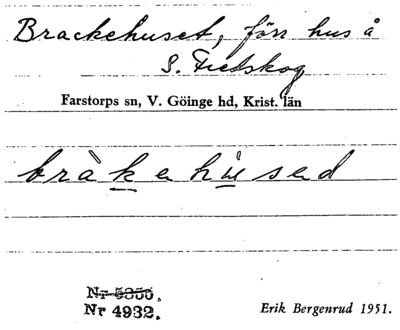 Brackehuset, förr hus å
S. Fredskog
Farstorps sn, V. Göinge hd, Krist. län
bràkehùsed
Nr 5350.
Nr 4932.
Erik Bergenrud 1951.